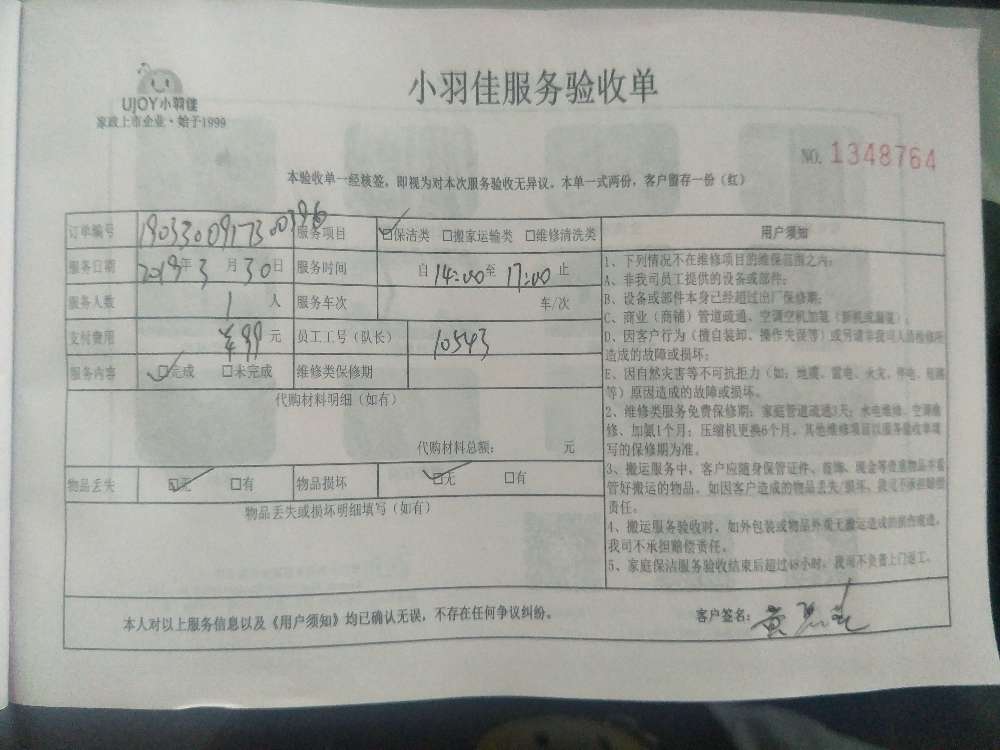 UJOY小羽佳
家政上市企业·始于1999
小羽佳服务验收单
NO. 1348764
本验收单一经核签，即视为对本次服务验收无异议。本单一式两份，客户留存一份（红）
订单编号 190330091730396 服务项目 ☑保洁类 □搬家运输类 □维修清洗类
服务日期 2019年3月30日 服务时间 自14:00至17:00止
服务人数 1人 服务车次 车/次
支付费用 ¥99元 员工工号（队长） 10543
服务内容 ☑完成 □未完成 维修类保修期
代购材料明细（如有）
代购材料总额： 元
物品丢失 ☑无 □有 物品损坏 ☑无 □有
物品丢失或损坏明细填写（如有）
用户须知
1、下列情况不在维修项目的维保范围之内：
A、非我司员工提供的设备或部件；
B、设备或部件本身已经超过出厂保修期；
C、商业（商铺）管道疏通、空调空机加氨（新机或漏氨）；
D、因客户行为（擅自装卸、操作失误等）或另请非我司人员维修所
造成的故障或损坏；
E、因自然灾害等不可抗拒力（如：地震、雷电、火灾、停电、短路
等）原因造成的故障或损坏。
2、维修类服务免费保修期：家庭管道疏通3天；水电维修、空调维
修、加氨1个月；压缩机更换6个月，其他维修项目以服务验收单填
写的保修期为准。
3、搬运服务中，客户应随身保管证件、首饰、现金等贵重物品不看
管好搬运的物品，如因客户造成的物品丢失/损坏，我司不承担赔偿
责任。
4、搬运服务验收时，如外包装或物品外观无搬运造成的损伤痕迹，
我司不承担赔偿责任。
5、家庭保洁服务验收结束后超过48小时，我司不负责上门返工。
本人对以上服务信息以及《用户须知》均已确认无误，不存在任何争议纠纷。
客户签名：黄